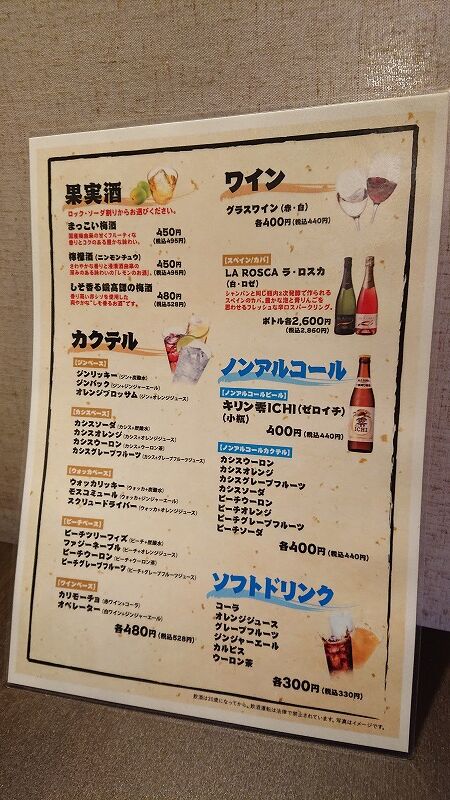 果実酒
ロック・ソーダ割りからお選びください。
まっこい梅酒 450円
(税込495円)
国産梅由来の甘くフルーティな
香りとコクのある豊かな味わい。
檸檬酒(ニンモンチュウ) 450円
(税込495円)
さわやかな香りと浸漬酒由来の
深みのある味わいの「レモンのお酒」。
しそ香る鍛高譚の梅酒 480円
(税込528円)
香り高い赤シソを使用した
爽やかな“しそ香るお酒”です。
カクテル
[ジンベース]
ジンリッキー(ジン+炭酸水)
ジンバック(ジン+ジンジャーエール)
オレンジブロッサム(ジン+オレンジジュース)
[カシスベース]
カシスソーダ(カシス+炭酸水)
カシスオレンジ(カシス+オレンジジュース)
カシスウーロン(カシス+ウーロン茶)
カシスグレープフルーツ(カシス+グレープフルーツジュース)
[ウォッカベース]
ウォッカリッキー(ウォッカ+炭酸水)
モスコミュール(ウォッカ+ジンジャーエール)
スクリュードライバー(ウォッカ+オレンジジュース)
[ピーチベース]
ピーチツリーフィズ(ピーチ+炭酸水)
ファジーネーブル(ピーチ+オレンジジュース)
ピーチウーロン(ピーチ+ウーロン茶)
ピーチグレープフルーツ(ピーチ+グレープフルーツジュース)
[ワインベース]
カリモーチョ(赤ワイン+コーラ)
オペレーター(白ワイン+ジンジャーエール)
各480円(税込528円)
ワイン
グラスワイン(赤・白)
各400円(税込440円)
[スペイン/カバ]
LA ROSCA ラ・ロスカ
(白・ロゼ)
シャンパンと同じ瓶内2次発酵で作られる
スペインのカバ。豊かな泡と青りんごを
思わせるフレッシュな辛口スパークリング。
ボトル各2,600円
(税込2,860円)
ノンアルコール
[ノンアルコールビール]
キリン零ICHI(ゼロイチ)
(小瓶)
400円(税込440円)
ICHI
[ノンアルコールカクテル]
カシスウーロン
カシスオレンジ
カシスグレープフルーツ
カシスソーダ
ピーチウーロン
ピーチオレンジ
ピーチグレープフルーツ
ピーチソーダ
各400円(税込440円)
ソフトドリンク
コーラ
オレンジジュース
グレープフルーツ
ジンジャーエール
カルピス
ウーロン茶
各300円(税込330円)
飲酒は20歳になってから。飲酒運転は法律で禁止されています。写真はイメージです。